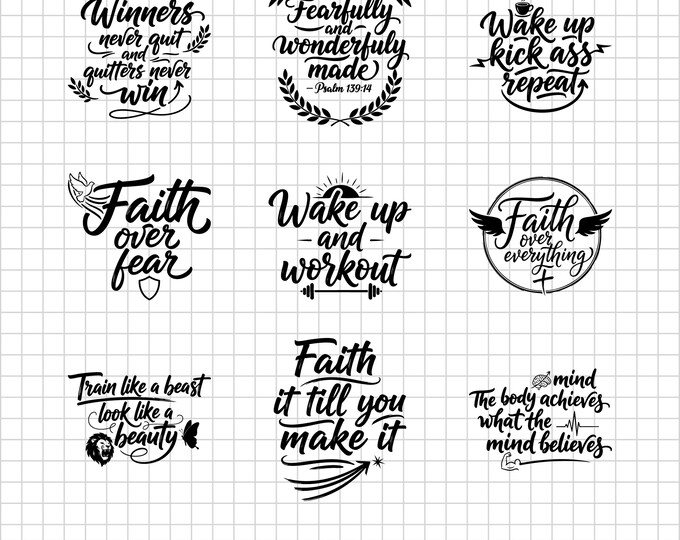 Winners
never quit
and
quitters never
win
Fearfully
and
wonderfuly
made
– Psalm 139:14
Wake up
kick ass
repeat
Faith
over
fear
Wake up
and
workout
Faith
over
everything
Train like a beast
look like a
beauty
Faith
it till you
make it
mind
The body achieves
what the
mind believes